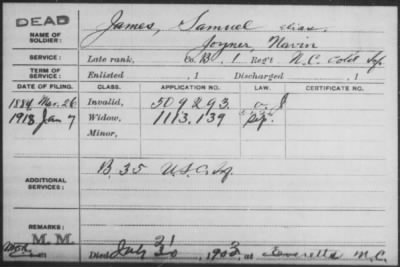 DEAD
NAME OF SOLDIER:
James, Samuel alias,
Joyner, Navin
SERVICE:
Late rank, Co. B. 1 Regt N.C. Cold Inf.
TERM OF SERVICE:
Enlisted , 1 Discharged , 1
DATE OF FILING. CLASS. APPLICATION NO. LAW. CERTIFICATE NO.
1884 Mar. 26 Invalid, 509293
1918 Jan 7 Widow, 1113,139
Minor,
ADDITIONAL SERVICES:
B, 35 U.S.C. Inf.
REMARKS:
M. M.
Died July 31 30, 1903, at Everetts N.C.